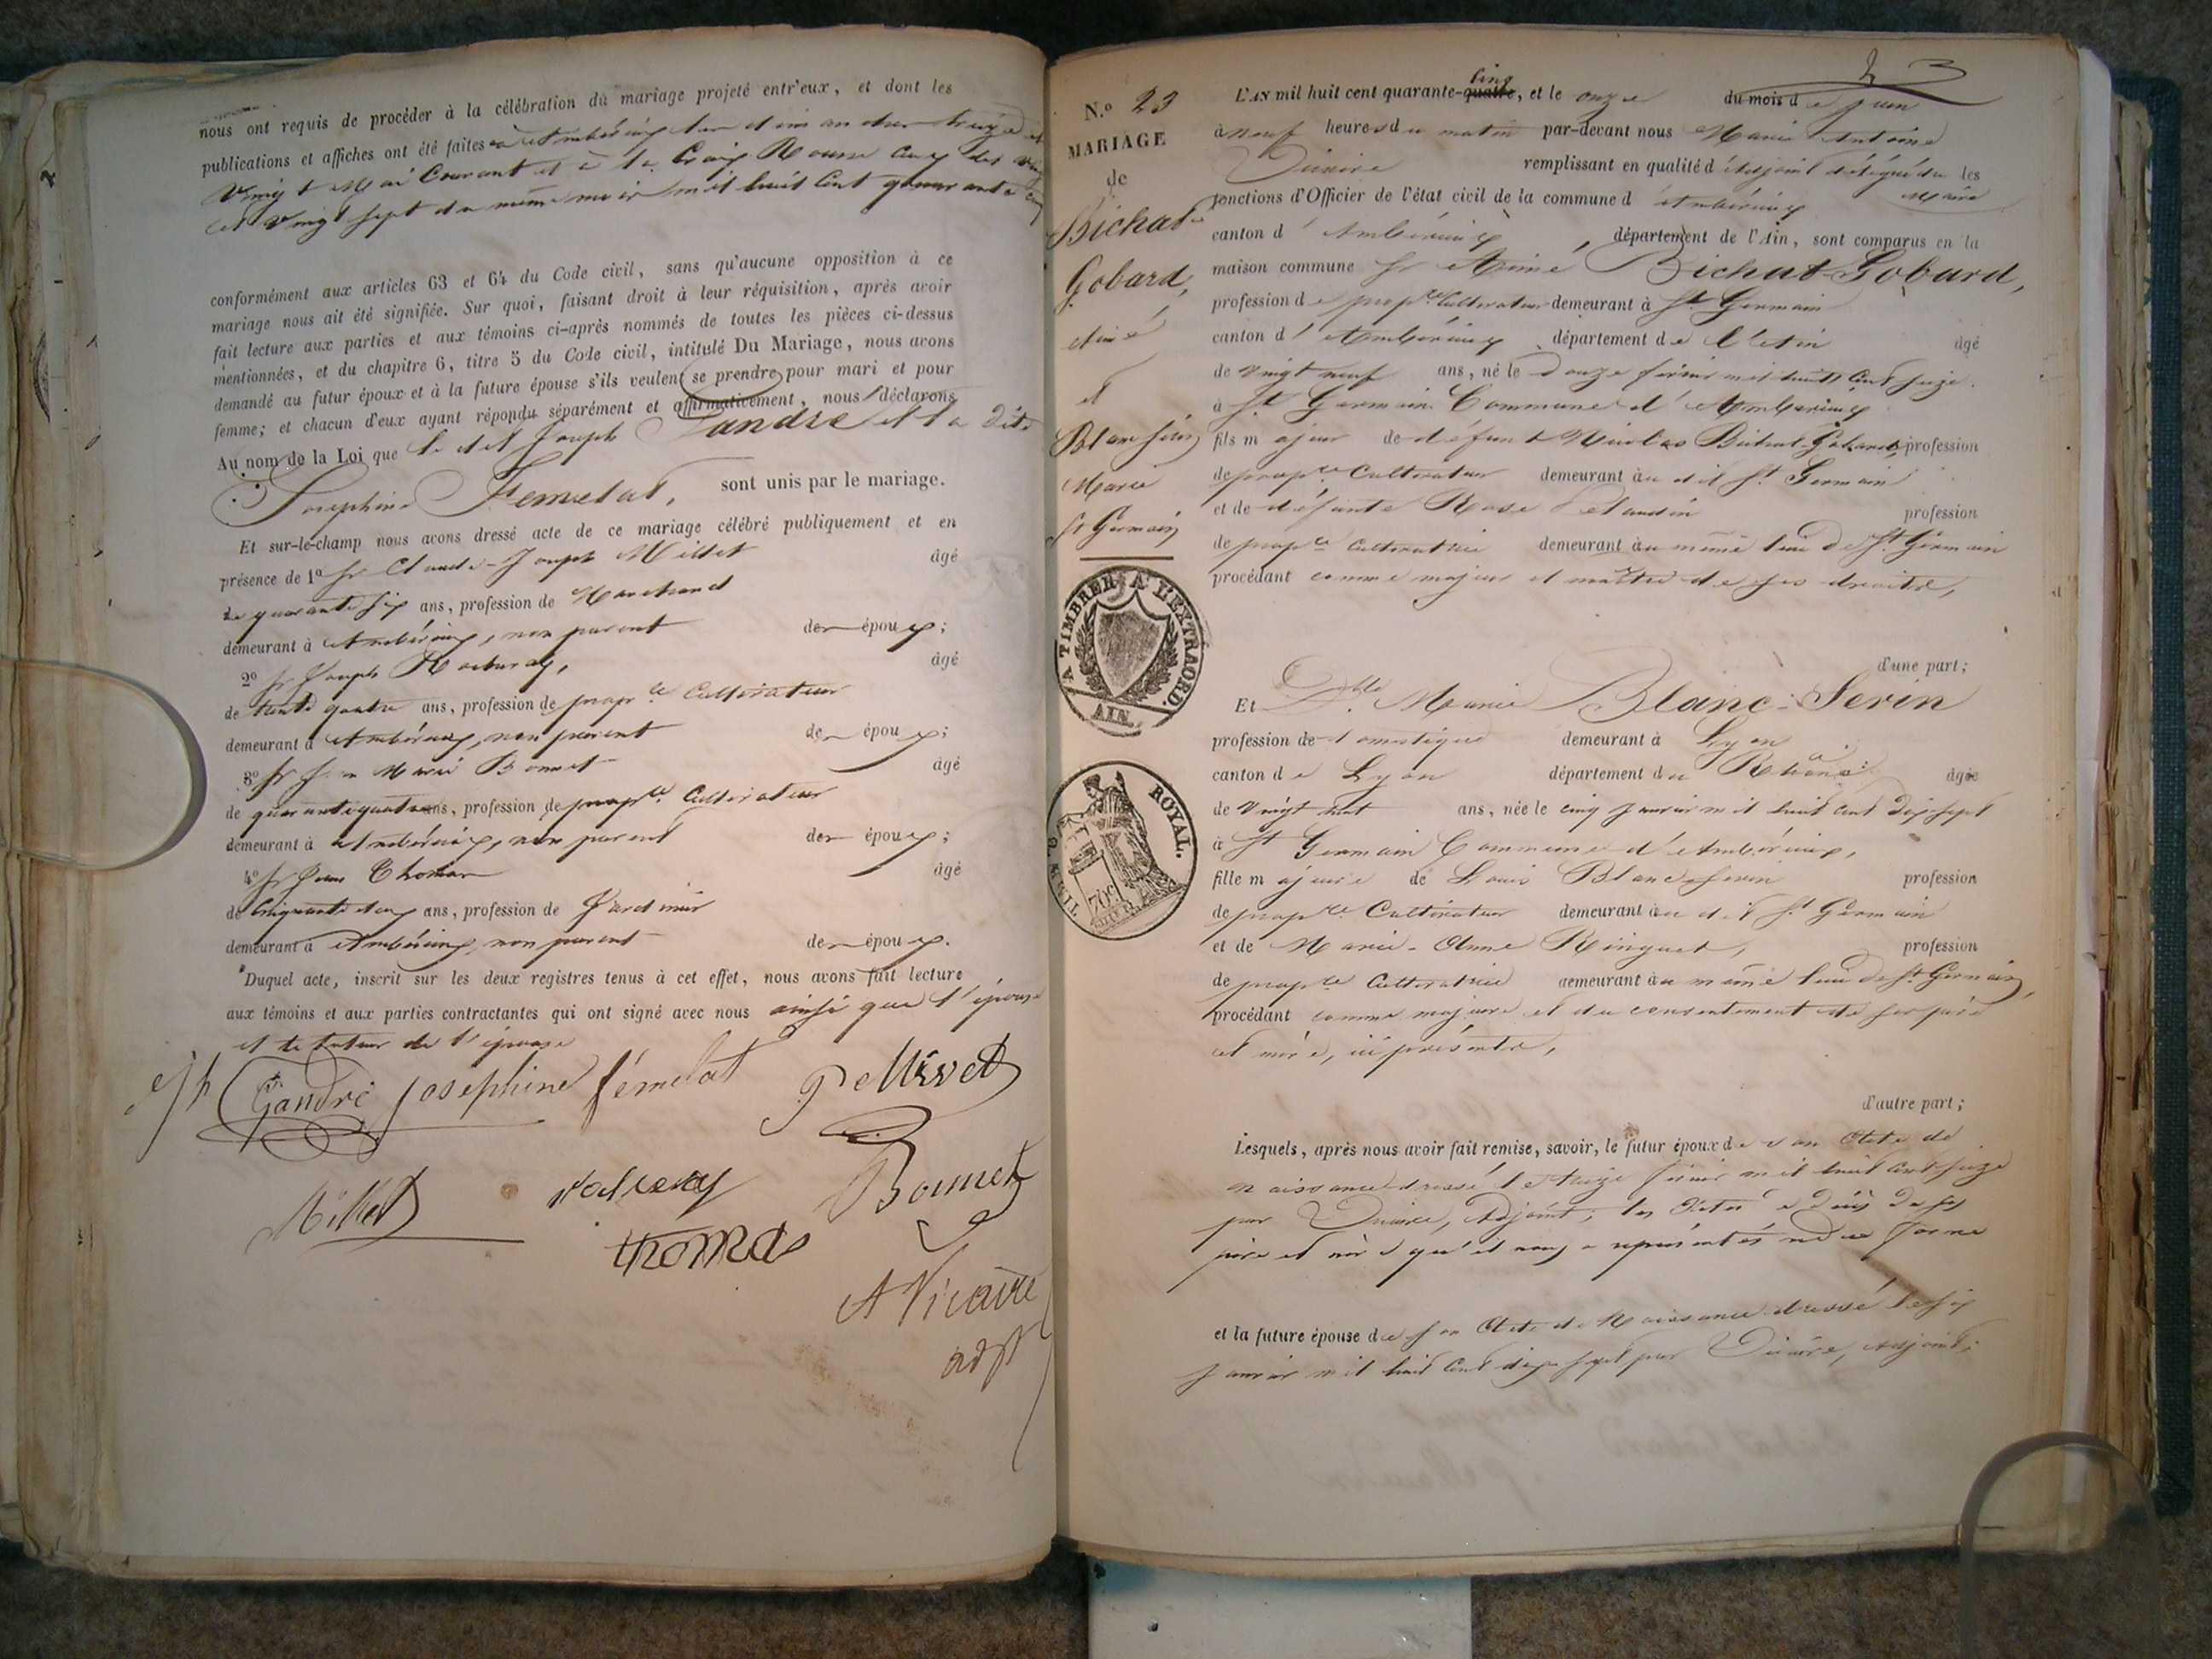 nous ont requis de procéder à la célébration du mariage projeté entr'eux, et dont les
publications et affiches ont été faites à Ambérieux
Vingt Mai Courant et à la Croix Rousse
et Vingt sept du même mois mil huit Cent quarante cinq
conformément aux articles 63 et 64 du Code civil, sans qu'aucune opposition à ce
mariage nous ait été signifiée. Sur quoi, faisant droit à leur réquisition, après avoir
fait lecture aux parties et aux témoins ci-après nommés de toutes les pièces ci-dessus
mentionnées, et du chapitre 6, titre 5 du Code civil, intitulé Du Mariage, nous avons
demandé au futur époux et à la future épouse s'ils veulent se prendre pour mari et pour
femme; et chacun d'eux ayant répondu séparément et affirmativement, nous déclarons
Au nom de la Loi que le dit Joseph Gandre et la dite
Josephine Femelat, sont unis par le mariage.
Et sur-le-champ nous avons dressé acte de ce mariage célébré publiquement et en
présence de 1º Sr Claude-Joseph Millet âgé
de quarante six ans, profession de Marchand
demeurant à Ambérieux, non parent des époux;
2º Sr Joseph âgé
de trente quatre ans, profession de propre Cultivateur
demeurant à Ambérieux, non parent des époux;
3º Sr Jean Marie Bonnet âgé
de quarante quatre ans, profession de propre Cultivateur
demeurant à Ambérieux, non parent des époux;
4º Sr Jean Thomas âgé
de Cinquante deux ans, profession de Jardinier
demeurant à Ambérieux, non parent des époux.
Duquel acte, inscrit sur les deux registres tenus à cet effet, nous avons fait lecture
aux témoins et aux parties contractantes qui ont signé avec nous ainsi que l'épouse
et le tuteur de l'épouse
Jph Gandre Josephine fémelat
Millet Bonnet
thomas
A Vicaire
adjt
23
N.º 23
MARIAGE
de
Bichat
Gobard,
Aimé
et
Blanc Serin
Marie
St Germain
A TIMBRER A L'EXTRAORD.
AIN.
TIMBRE ROYAL.
70 c.
L'AN mil huit cent quarante-quatre cinq, et le onze du mois de juin
à neuf heures du matin par-devant nous Marie Antoine
Vicaire remplissant en qualité d'Adjoint délégué du Maire les
fonctions d'Officier de l'état civil de la commune d'Ambérieux
canton d'Ambérieux, département de l'Ain, sont comparus en la
maison commune Sr Aimé Bichat-Gobard,
profession de propre Cultivateur demeurant à St Germain
canton d'Ambérieux département de l'Ain âgé
de Vingt neuf ans, né le Douze février mil huit Cent Seize
à St Germain Commune d'Ambérieux
fils majeur de défunt Nicolas Bichat-Gobard profession
de propre Cultivateur demeurant au dit St Germain
et de défunte Rose profession
de propre Cultivatrice demeurant au même lieu de St Germain
procédant comme majeur et maître de ses droits,
d'une part;
Et Dlle Marie Blanc-Serin
profession de domestique demeurant à Lyon
canton de Lyon département du Rhône âgée
de Vingt huit ans, née le cinq janvier mil huit cent dix sept
à St Germain Commune d'Ambérieux,
fille majeure de Louis Blanc-Serin profession
de propre Cultivateur demeurant au dit St Germain
et de Marie-Anne Ringuet, profession
de propre Cultivatrice demeurant au même lieu de St Germain,
procédant comme majeure et du consentement de ses père
et mère, ici présents,
d'autre part;
Lesquels, après nous avoir fait remise, savoir, le futur époux de son Acte de
naissance dressé le treize février mil huit cent seize
par Vicaire, Adjoint; les Actes de décès de ses
père et mère qu'il nous a représentés en due forme
et la future épouse de son Acte de Naissance dressé le six
janvier mil huit Cent dix sept par Vicaire, Adjoint;